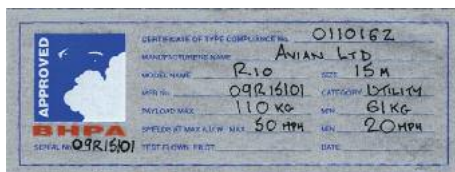 APPROVED
BHPA
CERTIFICATE OF TYPE COMPLIANCE No. 0110162
MANUFACTURERS NAME AVIAN LTD
MODEL NAME RIO SIZE 15 M
MFR No. 09R15101 CATEGORY UTILITY
PAYLOAD MAX 110 KG MIN 61 KG
SPEEDS AT MAX A.U.W. MAX 50 MPH MIN 20 MPH
SERIAL No 09R15101 TEST FLOWN PILOT DATE